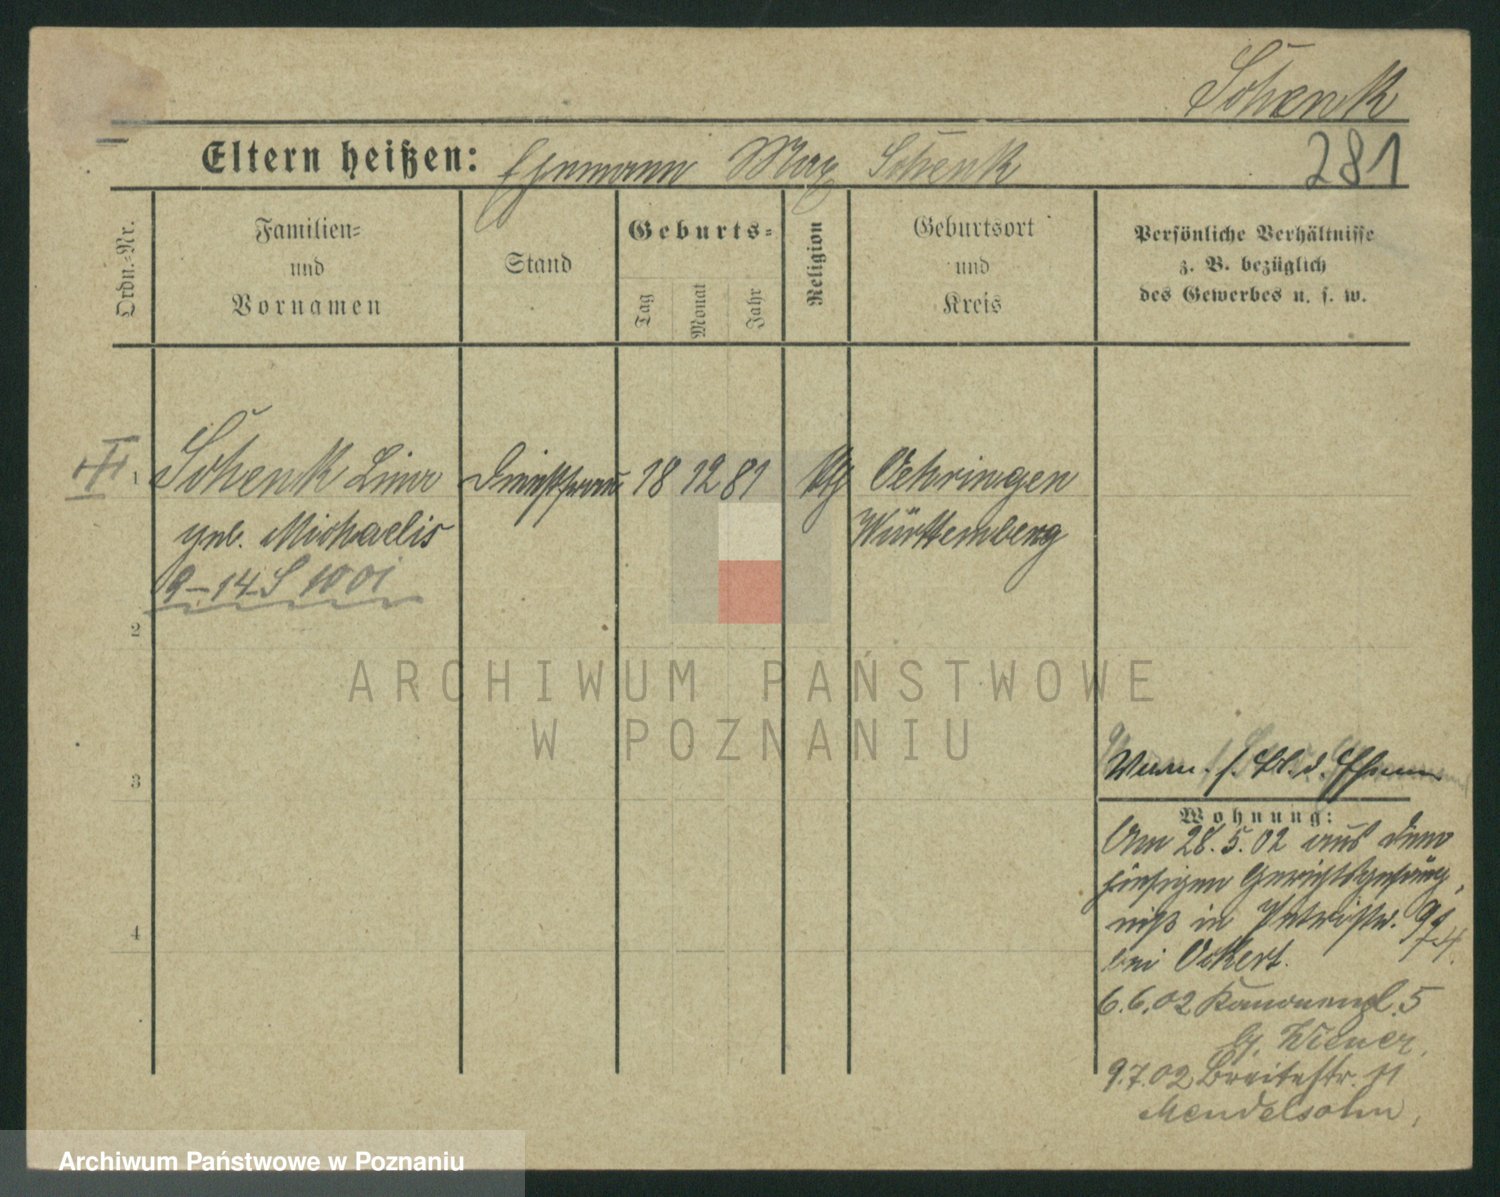 Schenk
Eltern heißen: Ehemann Max Schenk
281
Ordn.-Nr.
Familien-
und
Vornamen
Stand
Geburts-
Tag
Monat
Jahr
Religion
Geburtsort
und
Kreis
Persönliche Verhältnisse
z. B. bezüglich
des Gewerbes u. s. w.
1 Schenk Lina Dienstfrau 18 12 81 Oehringen
geb. Michaelis Württemberg
9-14 S 1001
2
ARCHIWUM PAŃSTWOWE
W POZNANIU
3
4
Wohnung:
Am 28.5.02 aus dem
hiesigen Gerichtsgefäng-
niß in
bei Ockert.
6.6.02 Kanonenpl. 5
Wiener,
9.7.02 Breitestr. 11
Mendelsohn,
Archiwum Państwowe w Poznaniu